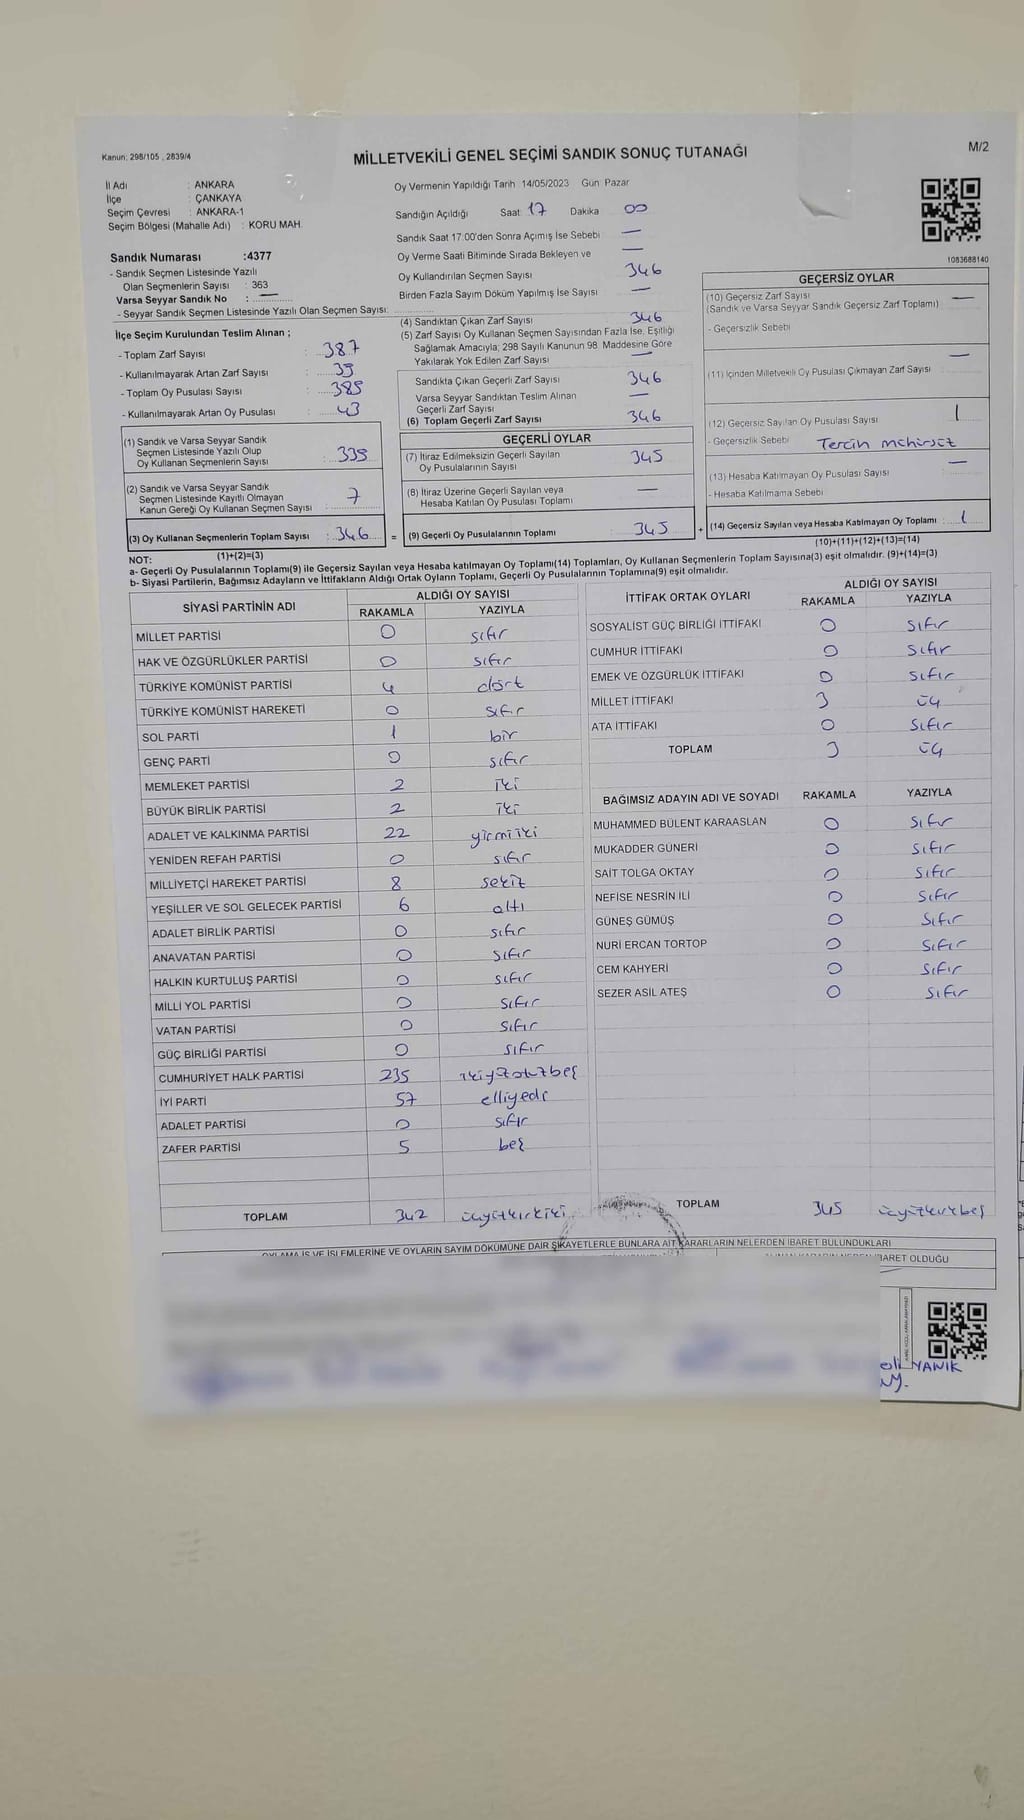 Kanun: 298/105 , 2839/4
MİLLETVEKİLİ GENEL SEÇİMİ SANDIK SONUÇ TUTANAĞI
M/2
İl Adı : ANKARA
İlçe : ÇANKAYA
Seçim Çevresi : ANKARA-1
Seçim Bölgesi (Mahalle Adı) : KORU MAH.
Sandık Numarası :4377
- Sandık Seçmen Listesinde Yazılı
Olan Seçmenlerin Sayısı : 363
Varsa Seyyar Sandık No : —
- Seyyar Sandık Seçmen Listesinde Yazılı Olan Seçmen Sayısı:
Oy Vermenin Yapıldığı Tarih 14/05/2023 Gün Pazar
Sandığın Açıldığı Saat 17 Dakika 00
Sandık Saat 17:00'den Sonra Açımış İse Sebebi —
Oy Verme Saati Bitiminde Sırada Bekleyen ve —
Oy Kullandırılan Seçmen Sayısı 346
Birden Fazla Sayım Döküm Yapılmış İse Sayısı —
1083688140
İlçe Seçim Kurulundan Teslim Alınan ;
- Toplam Zarf Sayısı : 387
- Kullanılmayarak Artan Zarf Sayısı :
- Toplam Oy Pusulası Sayısı : 389
- Kullanılmayarak Artan Oy Pusulası : 43
(1) Sandık ve Varsa Seyyar Sandık
Seçmen Listesinde Yazılı Olup
Oy Kullanan Seçmenlerin Sayısı : 339
(2) Sandık ve Varsa Seyyar Sandık
Seçmen Listesinde Kayıtlı Olmayan
Kanun Gereği Oy Kullanan Seçmen Sayısı : 7
(3) Oy Kullanan Seçmenlerin Toplam Sayısı : 346
(1)+(2)=(3)
(4) Sandıktan Çıkan Zarf Sayısı 346
(5) Zarf Sayısı Oy Kullanan Seçmen Sayısından Fazla İse, Eşitliği
Sağlamak Amacıyla; 298 Sayılı Kanunun 98. Maddesine Göre
Yakılarak Yok Edilen Zarf Sayısı —
Sandıkta Çıkan Geçerli Zarf Sayısı 346
Varsa Seyyar Sandıktan Teslim Alınan
Geçerli Zarf Sayısı —
(6) Toplam Geçerli Zarf Sayısı 346
GEÇERLİ OYLAR
(7) İtiraz Edilmeksizin Geçerli Sayılan
Oy Pusulalarının Sayısı 345
(8) İtiraz Üzerine Geçerli Sayılan veya
Hesaba Katılan Oy Pusulası Toplamı —
= (9) Geçerli Oy Pusulalarının Toplamı 345
GEÇERSİZ OYLAR
(10) Geçersiz Zarf Sayısı —
(Sandık ve Varsa Seyyar Sandık Geçersiz Zarf Toplamı)
- Geçersizlik Sebebi
(11) İçinden Milletvekili Oy Pusulası Çıkmayan Zarf Sayısı —
(12) Geçersiz Sayılan Oy Pusulası Sayısı 1
- Geçersizlik Sebebi Tercih
(13) Hesaba Katılmayan Oy Pusulası Sayısı —
- Hesaba Katılmama Sebebi
+ (14) Geçersiz Sayılan veya Hesaba Katılmayan Oy Toplamı : 1
(10)+(11)+(12)+(13)=(14)
NOT:
a- Geçerli Oy Pusulalarının Toplamı(9) ile Geçersiz Sayılan veya Hesaba katılmayan Oy Toplamı(14) Toplamları, Oy Kullanan Seçmenlerin Toplam Sayısına(3) eşit olmalıdır. (9)+(14)=(3)
b- Siyasi Partilerin, Bağımsız Adayların ve İttifakların Aldığı Ortak Oyların Toplamı, Geçerli Oy Pusulalarının Toplamına(9) eşit olmalıdır.
SİYASİ PARTİNİN ADI ALDIĞI OY SAYISI
RAKAMLA YAZIYLA
MİLLET PARTİSİ 0 sıfır
HAK VE ÖZGÜRLÜKLER PARTİSİ 0 sıfır
TÜRKİYE KOMÜNİST PARTİSİ 4 dört
TÜRKİYE KOMÜNİST HAREKETİ 0 sıfır
SOL PARTİ 1 bir
GENÇ PARTİ 0 sıfır
MEMLEKET PARTİSİ 2 iki
BÜYÜK BİRLİK PARTİSİ 2 iki
ADALET VE KALKINMA PARTİSİ 22 yirmiiki
YENİDEN REFAH PARTİSİ 0 sıfır
MİLLİYETÇİ HAREKET PARTİSİ 8 sekiz
YEŞİLLER VE SOL GELECEK PARTİSİ 6 altı
ADALET BİRLİK PARTİSİ 0 sıfır
ANAVATAN PARTİSİ 0 sıfır
HALKIN KURTULUŞ PARTİSİ 0 sıfır
MİLLİ YOL PARTİSİ 0 sıfır
VATAN PARTİSİ 0 sıfır
GÜÇ BİRLİĞİ PARTİSİ 0 sıfır
CUMHURİYET HALK PARTİSİ 235 ikiyüzotuzbeş
İYİ PARTİ 57 elliyedi
ADALET PARTİSİ 0 sıfır
ZAFER PARTİSİ 5 beş
TOPLAM 342 üçyüzkırkiki
İTTİFAK ORTAK OYLARI ALDIĞI OY SAYISI
RAKAMLA YAZIYLA
SOSYALİST GÜÇ BİRLİĞİ İTTİFAKI 0 sıfır
CUMHUR İTTİFAKI 0 sıfır
EMEK VE ÖZGÜRLÜK İTTİFAKI 0 sıfır
MİLLET İTTİFAKI 3 üç
ATA İTTİFAKI 0 sıfır
TOPLAM 3 üç
BAĞIMSIZ ADAYIN ADI VE SOYADI RAKAMLA YAZIYLA
MUHAMMED BÜLENT KARAASLAN 0 sıfır
MUKADDER GÜNERİ 0 sıfır
SAİT TOLGA OKTAY 0 sıfır
NEFİSE NESRİN İLİ 0 sıfır
GÜNEŞ GÜMÜŞ 0 sıfır
NURİ ERCAN TORTOP 0 sıfır
CEM KAHYERİ 0 sıfır
SEZER ASİL ATEŞ 0 sıfır
TOPLAM 345 üçyüzkırkbeş
OYLAMA İŞ VE İŞLEMLERİNE VE OYLARIN SAYIM DÖKÜMÜNE DAİR ŞİKAYETLERLE BUNLARA AİT KARARLARIN NELERDEN İBARET BULUNDUKLARI
İBARET OLDUĞU
YANIK